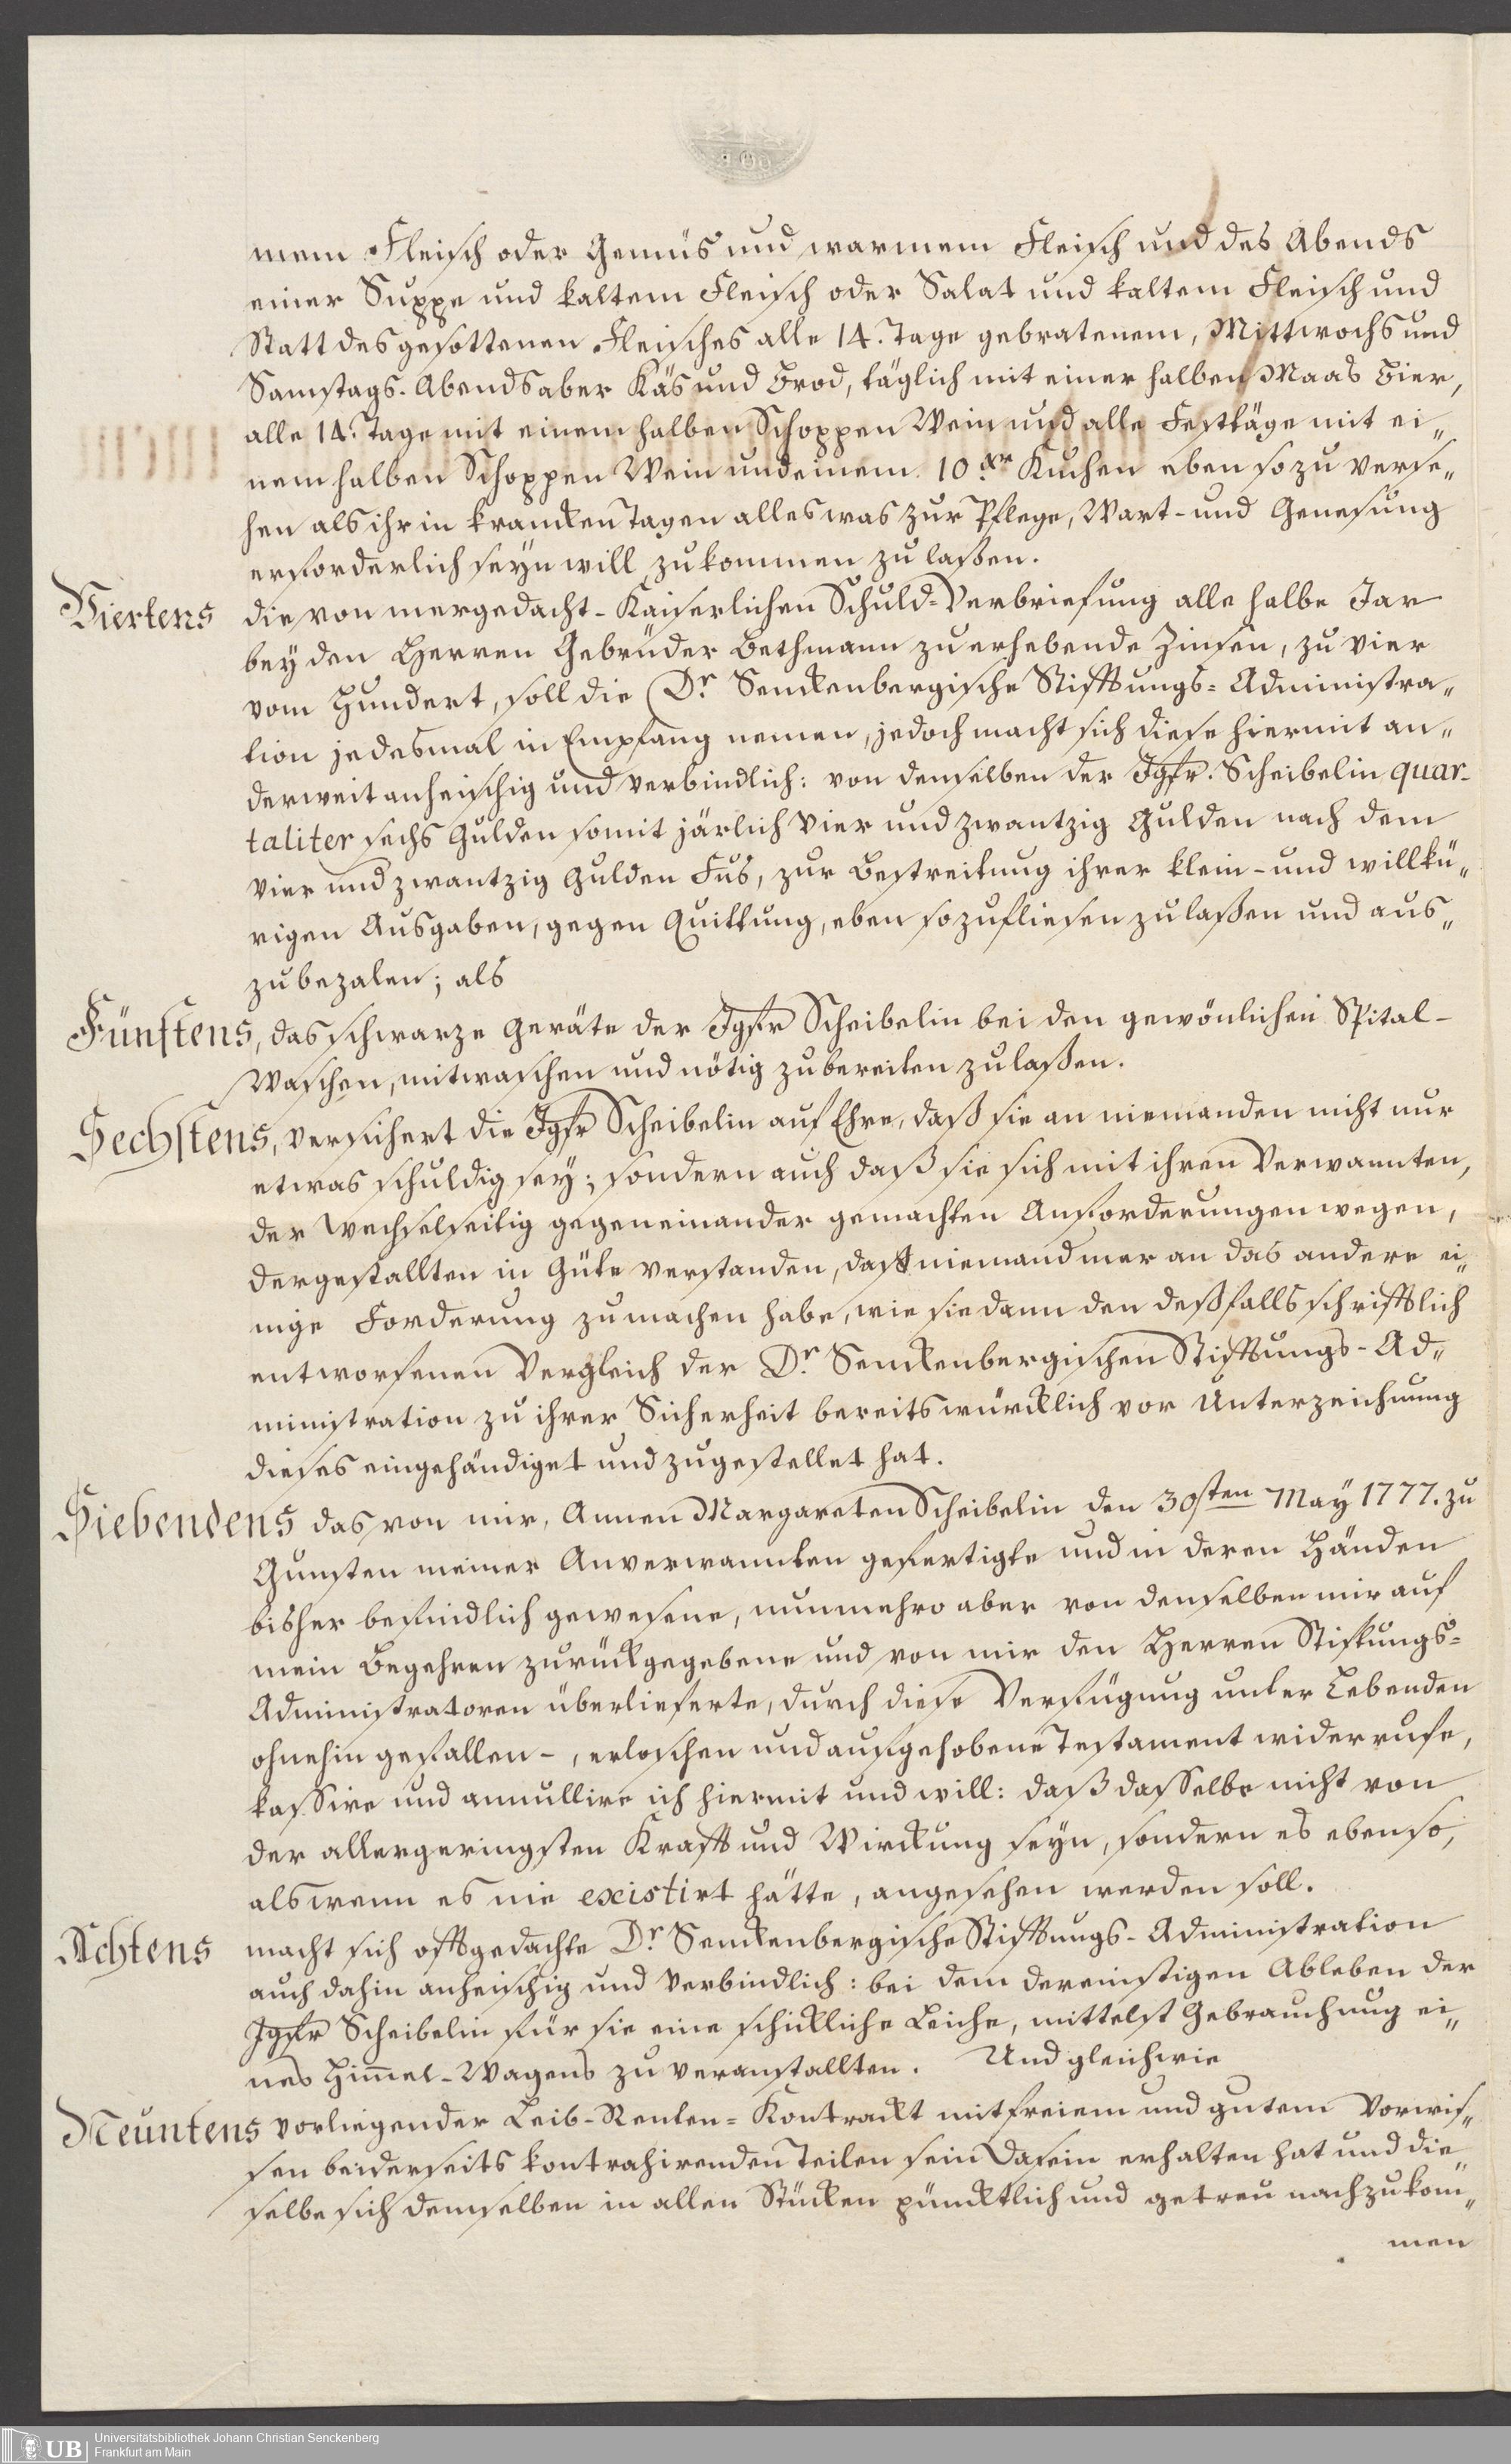 mem Fleisch oder Gemüs und warmem Fleisch und des Abends
einer Suppe und kaltem Fleisch oder Salat und kaltem Fleisch und
Statt des gesottenen Fleisches alle 14. Tage gebratenem, Mittwochs und
Samstags-Abends aber Käs und Brod, täglich mit einer halben Maas Bier,
alle 14. Tage mit einem halben Schoppen Wein und alle Festtäge mit ei„
nem halben Schoppen Wein und einem 10 xr Kuchen eben so zu verse„
hen als ihr in krancken Tagen alles was zur Pflege, Wart- und Genesung
erforderlich seyn will zukommen zu laßen.
Viertens die von mergedacht-Kaiserlichen Schuld-Verbriefung alle halbe Jar
bey den Herren Gebrüder Bethmann zu erhebende Zinsen, zu vier
vom Hundert, soll die Dr. Senckenbergische Stifftungs-Administra„
tion jedesmal in Empfang nemen, jedoch macht sich diese hiermit an„
derweit anheischig und verbindlich: von denselben der Jgfr. Scheibelin quar-
taliter sechs Gulden somit järlich vier und zwantzig Gulden nach dem
vier und zwantzig Gulden Fus, zur Bestreitung ihrer klein- und willkü„
rigen Ausgaben, gegen Quittung, eben so zufliesen zu laßen und aus„
zubezalen; als
Fünftens, das schwarze Geräte der Jgfr Scheibelin bei den gewönlichen Spital-
Waschen, mitwaschen und nötig zubereiten zu laßen.
Sechstens, versichert die Jgfr Scheibelin auf Ehre, daß sie an niemanden nicht nur
etwas schuldig sey; sondern auch daß sie sich mit ihren Verwannten,
der wechselseitig gegeneinander gemachten Anforderungen wegen,
dergestallten in Güte verstanden, daß niemand mer an das andere ei„
nige Forderung zu machen habe, wie sie dann den deßfalls schrifftlich
entworfenen Vergleich der Dr. Senckenbergischen Stifftungs-Ad„
ministration zu ihrer Sicherheit bereits würcklich vor Unterzeichnung
dieses eingehändiget und zugestellet hat.
Siebendens das von mir, Annen Margareten Scheibelin den 30sten May 1777. zu
Gunsten meiner Anverwannten gefertigte und in deren Händen
bisher befindlich gewesene, nunmehro aber von denselben mir auf
mein Begehren zurückgegebene und von mir den Herren Stiftungs-
Administratoren überlieferte, durch diese Verfügung unter Lebenden
ohnehin gefallen-, erloschen und aufgehobene Testament widerrufe,
kassire und annullire ich hiermit und will: daß dasselbe nicht von
der allergeringsten Krafft und Wirckung seyn, sondern es eben so,
als wenn es nie existirt hätte, angesehen werden soll.
Achtens macht sich offtgedachte Dr. Senckenbergische Stifftungs-Administration
auch dahin anheischig und verbindlich: bei dem dereinstigen Ableben der
Jgfr Scheibelin für sie eine schickliche Leiche, mittelst Gebrauchung ei„
nes Himmel-Wagens zu veranstallten. Und gleichwie
Neuntens vorliegender Leib-Renten-Kontrackt mit freiem und gutem Vorwis„
sen beiderseits kontrahirenden Teilen sein Dasein erhalten hat und die„
selbe sich demselben in allen Stücken pünctlich und getreu nachzukom„
men
UB
Universitätsbibliothek Johann Christian Senckenberg
Frankfurt am Main